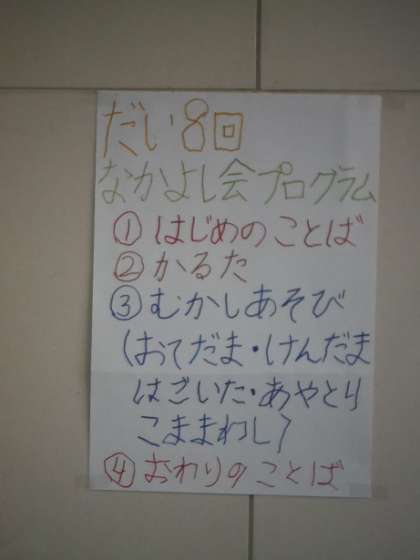 だい8回
なかよし会プログラム
①はじめのことば
②かるた
③むかしあそび
(おてだま・けんだま
はごいた・あやとり
こままわし)
④おわりのことば